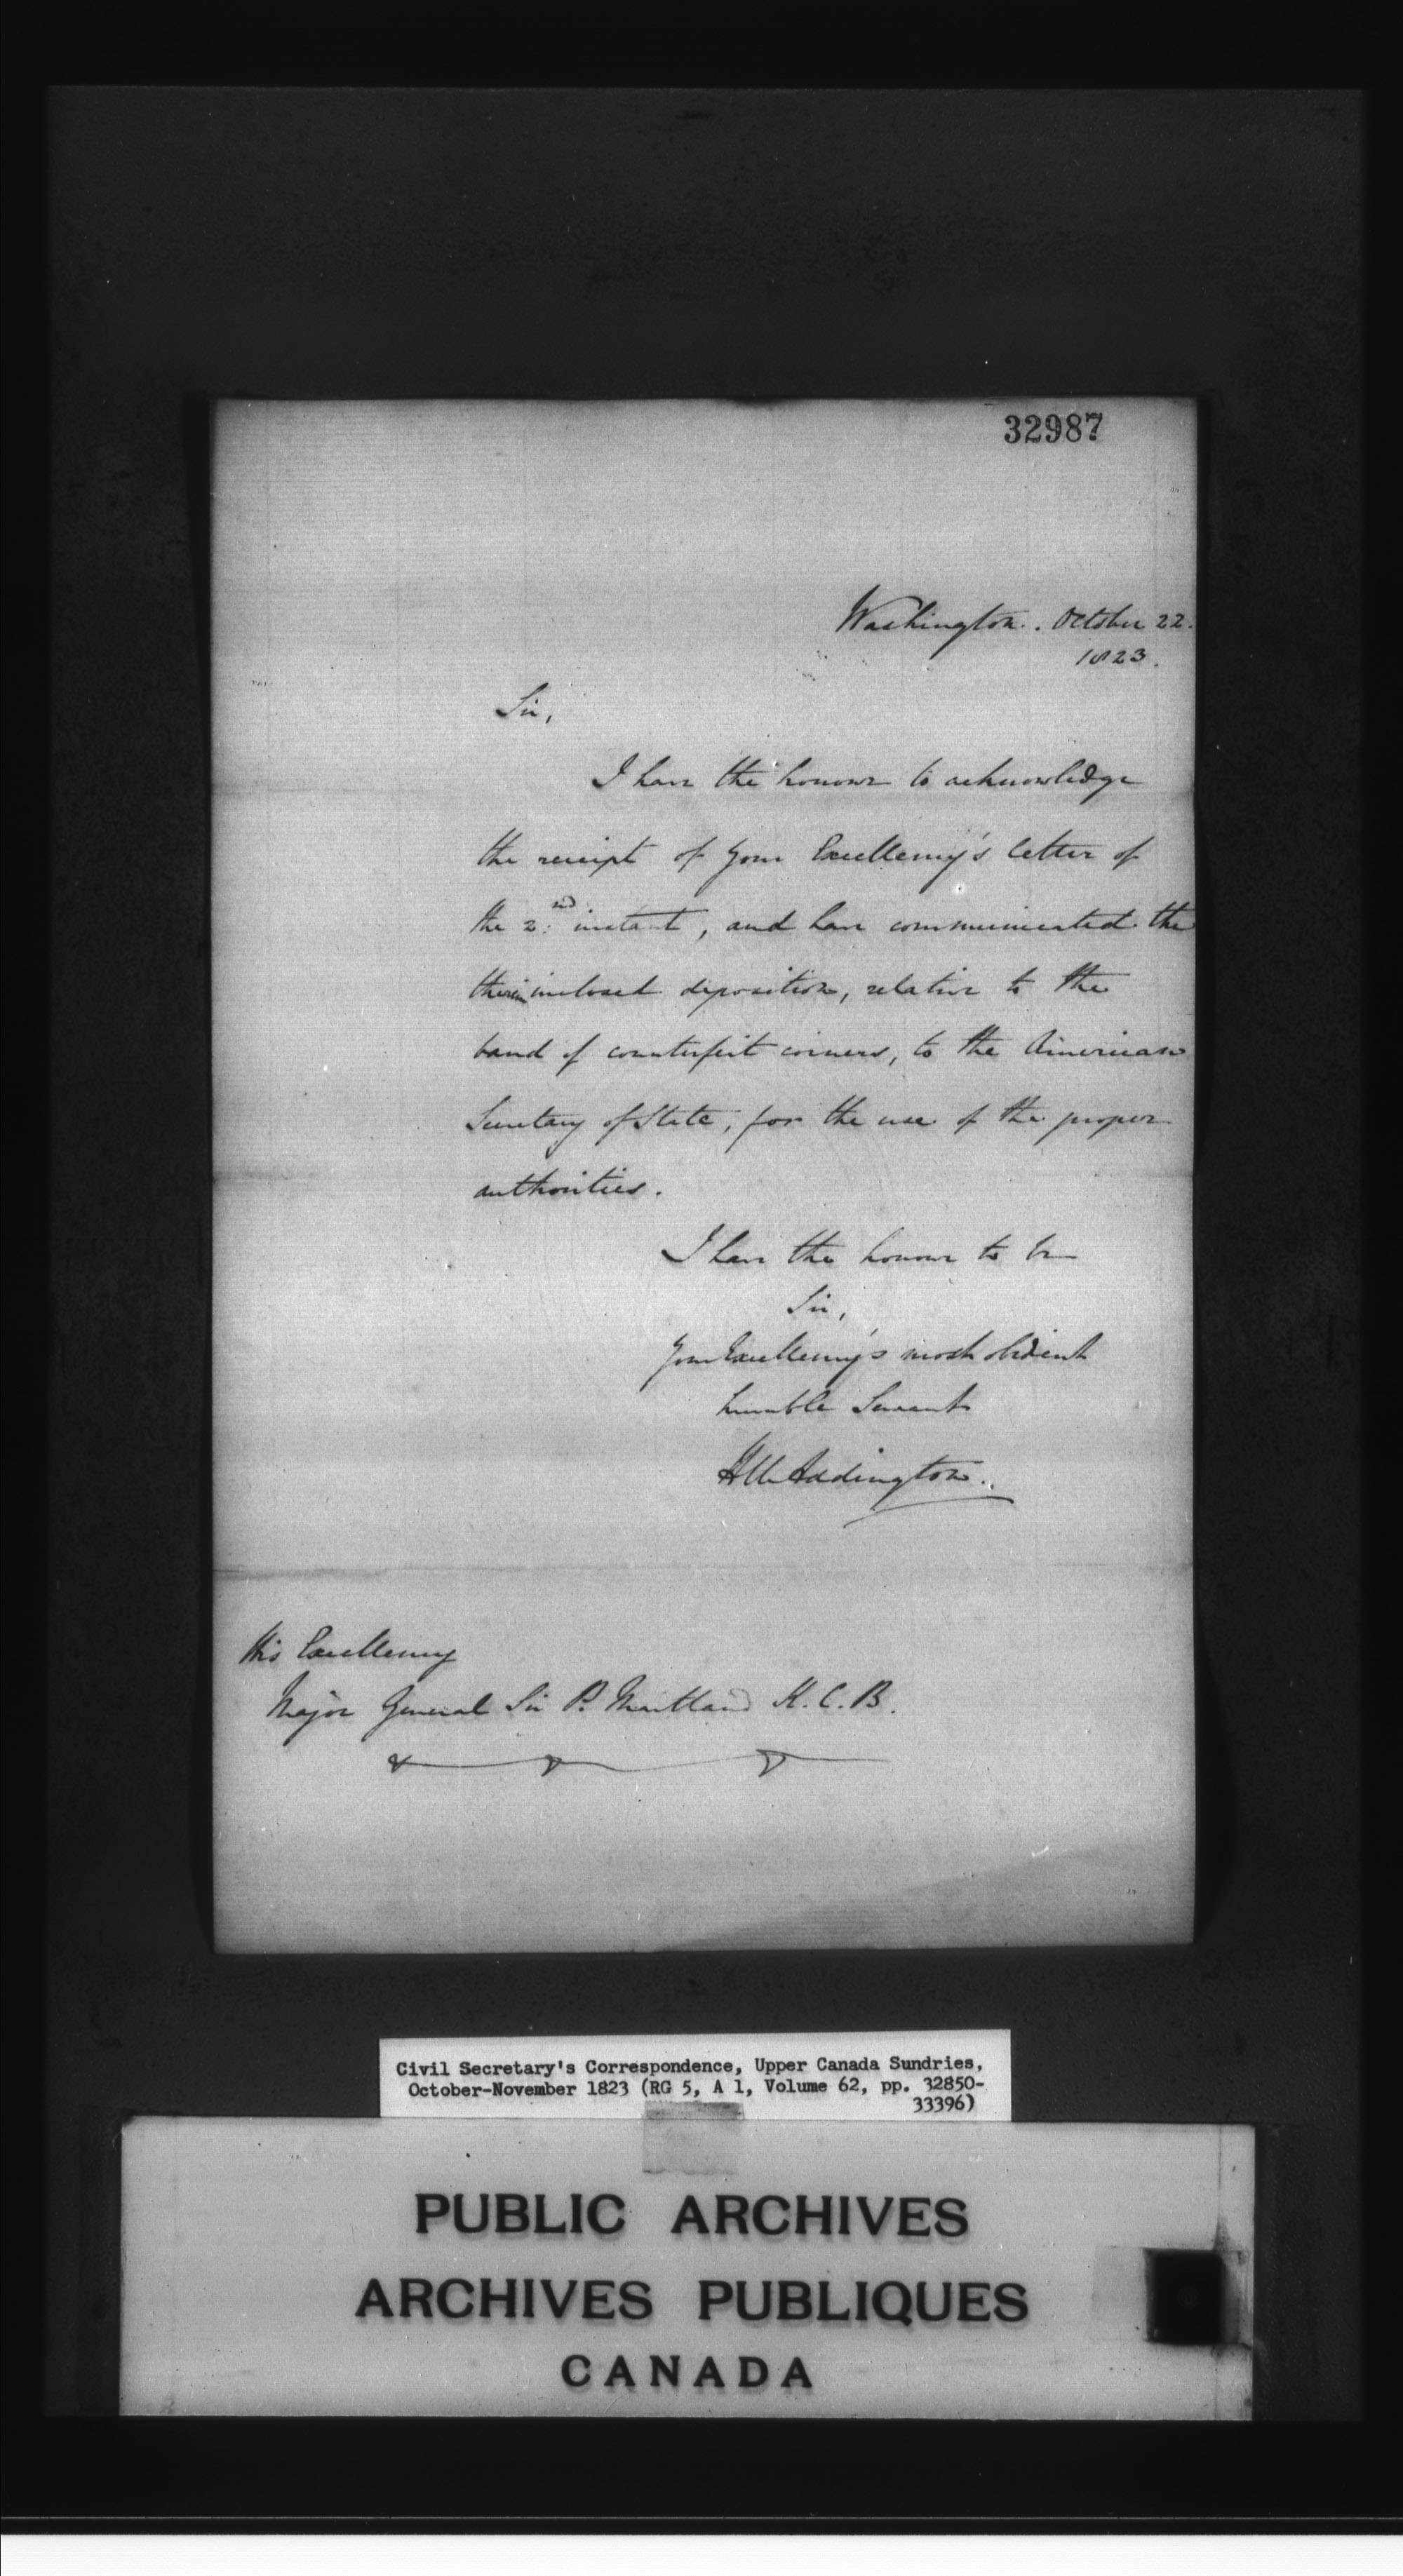 32987
Washington. October 22.
1823.
Sir,
I have the honour to acknowledge
the receipt of your Excellency's letter of
the 2nd instant, and have communicated the
therein inclosed deposition, relative to the
band of counterfeit coiners, to the American
Secretary of State, for the use of the proper
authorities.
I have the honour to be
Sir,
Your Excellency's most obedient
humble Servant
H U Addington.
His Excellency
Major General Sir P. Maitland K. C. B.
Civil Secretary's Correspondence, Upper Canada Sundries,
October-November 1823 (RG 5, A 1, Volume 62, pp. 32850-
33396)
PUBLIC ARCHIVES
ARCHIVES PUBLIQUES
CANADA